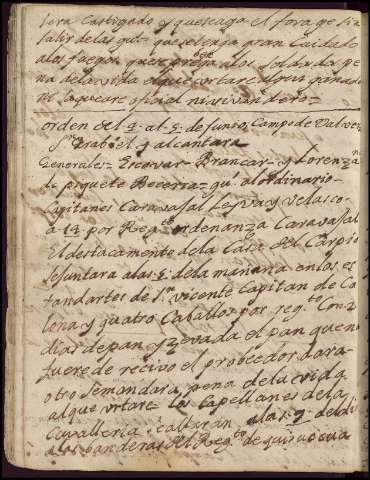 sera Castigado y que se aga el fora ge sin
salir de las gu.s que se tenga gran Cuidado
a los fuegos
pe
na de la vida el que cortare
ni saqueare oficial ni
orden del 4 al 5 de Junio Campo de Val ver
Ysabel y alcantara
Generales = Escovar = Brancar = y Lorenzan
de piquete Becerra = gu.a al ordinario
Capitanes Caravajal Leyva y Velasco
a 14 por Reg.to ordenanza Caravajal
El destacamento de la Casa del Carpio
se juntara a las 5 de la mañana en los es
tandartes de S.n Vicente Capitan de Co
lona y quatro Caballos por reg.to Con 2
dias de pan y zevada el pan que no
fuere de recivo el proveedor dara
otro se mandara pena de la vida
al que urtare = los Capellanes de la
Cavalleria se allaran a las 9 del dia
a las banderas del Reg.to de